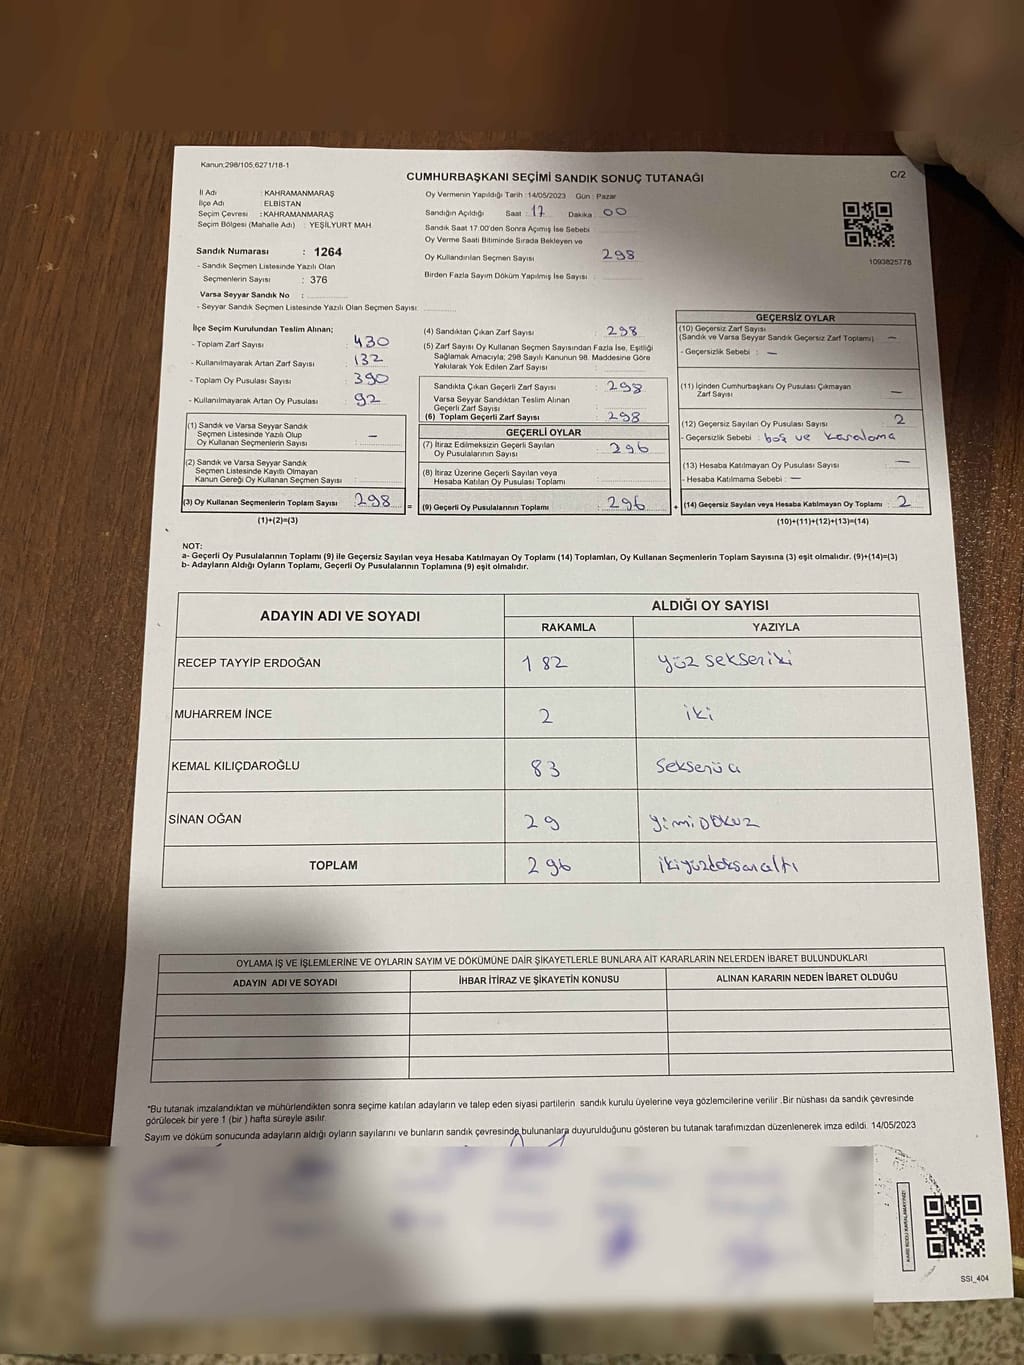 Kanun;298/105,6271/18-1
CUMHURBAŞKANI SEÇİMİ SANDIK SONUÇ TUTANAĞI
C/2
İl Adı : KAHRAMANMARAŞ
İlçe Adı : ELBİSTAN
Seçim Çevresi : KAHRAMANMARAŞ
Seçim Bölgesi (Mahalle Adı) : YEŞİLYURT MAH.
Sandık Numarası : 1264
- Sandık Seçmen Listesinde Yazılı Olan
Seçmenlerin Sayısı : 376
Varsa Seyyar Sandık No :
- Seyyar Sandık Seçmen Listesinde Yazılı Olan Seçmen Sayısı :
Oy Vermenin Yapıldığı Tarih : 14/05/2023 Gün : Pazar
Sandığın Açıldığı Saat : 17 Dakika : 00
Sandık Saat 17:00'den Sonra Açımış İse Sebebi
Oy Verme Saati Bitiminde Sırada Bekleyen ve
Oy Kullandırılan Seçmen Sayısı 298
Birden Fazla Sayım Döküm Yapılmış İse Sayısı :
1093825778
İlçe Seçim Kurulundan Teslim Alınan;
- Toplam Zarf Sayısı : 430
- Kullanılmayarak Artan Zarf Sayısı : 132
- Toplam Oy Pusulası Sayısı : 390
- Kullanılmayarak Artan Oy Pusulası : 92
(1) Sandık ve Varsa Seyyar Sandık
Seçmen Listesinde Yazılı Olup
Oy Kullanan Seçmenlerin Sayısı : —
(2) Sandık ve Varsa Seyyar Sandık
Seçmen Listesinde Kayıtlı Olmayan
Kanun Gereği Oy Kullanan Seçmen Sayısı :
(3) Oy Kullanan Seçmenlerin Toplam Sayısı : 298
(1)+(2)=(3)
=
(4) Sandıktan Çıkan Zarf Sayısı : 298
(5) Zarf Sayısı Oy Kullanan Seçmen Sayısından Fazla İse, Eşitliği
Sağlamak Amacıyla; 298 Sayılı Kanunun 98. Maddesine Göre
Yakılarak Yok Edilen Zarf Sayısı :
Sandıkta Çıkan Geçerli Zarf Sayısı : 298
Varsa Seyyar Sandıktan Teslim Alınan
Geçerli Zarf Sayısı :
(6) Toplam Geçerli Zarf Sayısı : 298
GEÇERLİ OYLAR
(7) İtiraz Edilmeksizin Geçerli Sayılan
Oy Pusulalarının Sayısı : 296
(8) İtiraz Üzerine Geçerli Sayılan veya
Hesaba Katılan Oy Pusulası Toplamı :
(9) Geçerli Oy Pusulalarının Toplamı : 296
+
GEÇERSİZ OYLAR
(10) Geçersiz Zarf Sayısı
(Sandık ve Varsa Seyyar Sandık Geçersiz Zarf Toplamı) : —
- Geçersizlik Sebebi : —
(11) İçinden Cumhurbaşkanı Oy Pusulası Çıkmayan
Zarf Sayısı —
(12) Geçersiz Sayılan Oy Pusulası Sayısı : 2
- Geçersizlik Sebebi : boş ve karalama
(13) Hesaba Katılmayan Oy Pusulası Sayısı : —
- Hesaba Katılmama Sebebi : —
(14) Geçersiz Sayılan veya Hesaba Katılmayan Oy Toplamı : 2
(10)+(11)+(12)+(13)=(14)
NOT:
a- Geçerli Oy Pusulalarının Toplamı (9) ile Geçersiz Sayılan veya Hesaba Katılmayan Oy Toplamı (14) Toplamları, Oy Kullanan Seçmenlerin Toplam Sayısına (3) eşit olmalıdır. (9)+(14)=(3)
b- Adayların Aldığı Oyların Toplamı, Geçerli Oy Pusulalarının Toplamına (9) eşit olmalıdır.
ADAYIN ADI VE SOYADI
ALDIĞI OY SAYISI
RAKAMLA YAZIYLA
RECEP TAYYİP ERDOĞAN 182 yüz sekseniki
MUHARREM İNCE 2 iki
KEMAL KILIÇDAROĞLU 83 Seksenüç
SİNAN OĞAN 29 yimiDOKUZ
TOPLAM 296 ikiyüzdoksanaltı
OYLAMA İŞ VE İŞLEMLERİNE VE OYLARIN SAYIM VE DÖKÜMÜNE DAİR ŞİKAYETLERLE BUNLARA AİT KARARLARIN NELERDEN İBARET BULUNDUKLARI
ADAYIN ADI VE SOYADI İHBAR İTİRAZ VE ŞİKAYETİN KONUSU ALINAN KARARIN NEDEN İBARET OLDUĞU
*Bu tutanak imzalandıktan ve mühürlendikten sonra seçime katılan adayların ve talep eden siyasi partilerin sandık kurulu üyelerine veya gözlemcilerine verilir .Bir nüshası da sandık çevresinde
görülecek bir yere 1 (bir ) hafta süreyle asılır.
Sayım ve döküm sonucunda adayların aldığı oyların sayılarını ve bunların sandık çevresinde bulunanlara duyurulduğunu gösteren bu tutanak tarafımızdan düzenlenerek imza edildi. 14/05/2023
KARE KODU KARALAMAYINIZ!
SSI_404